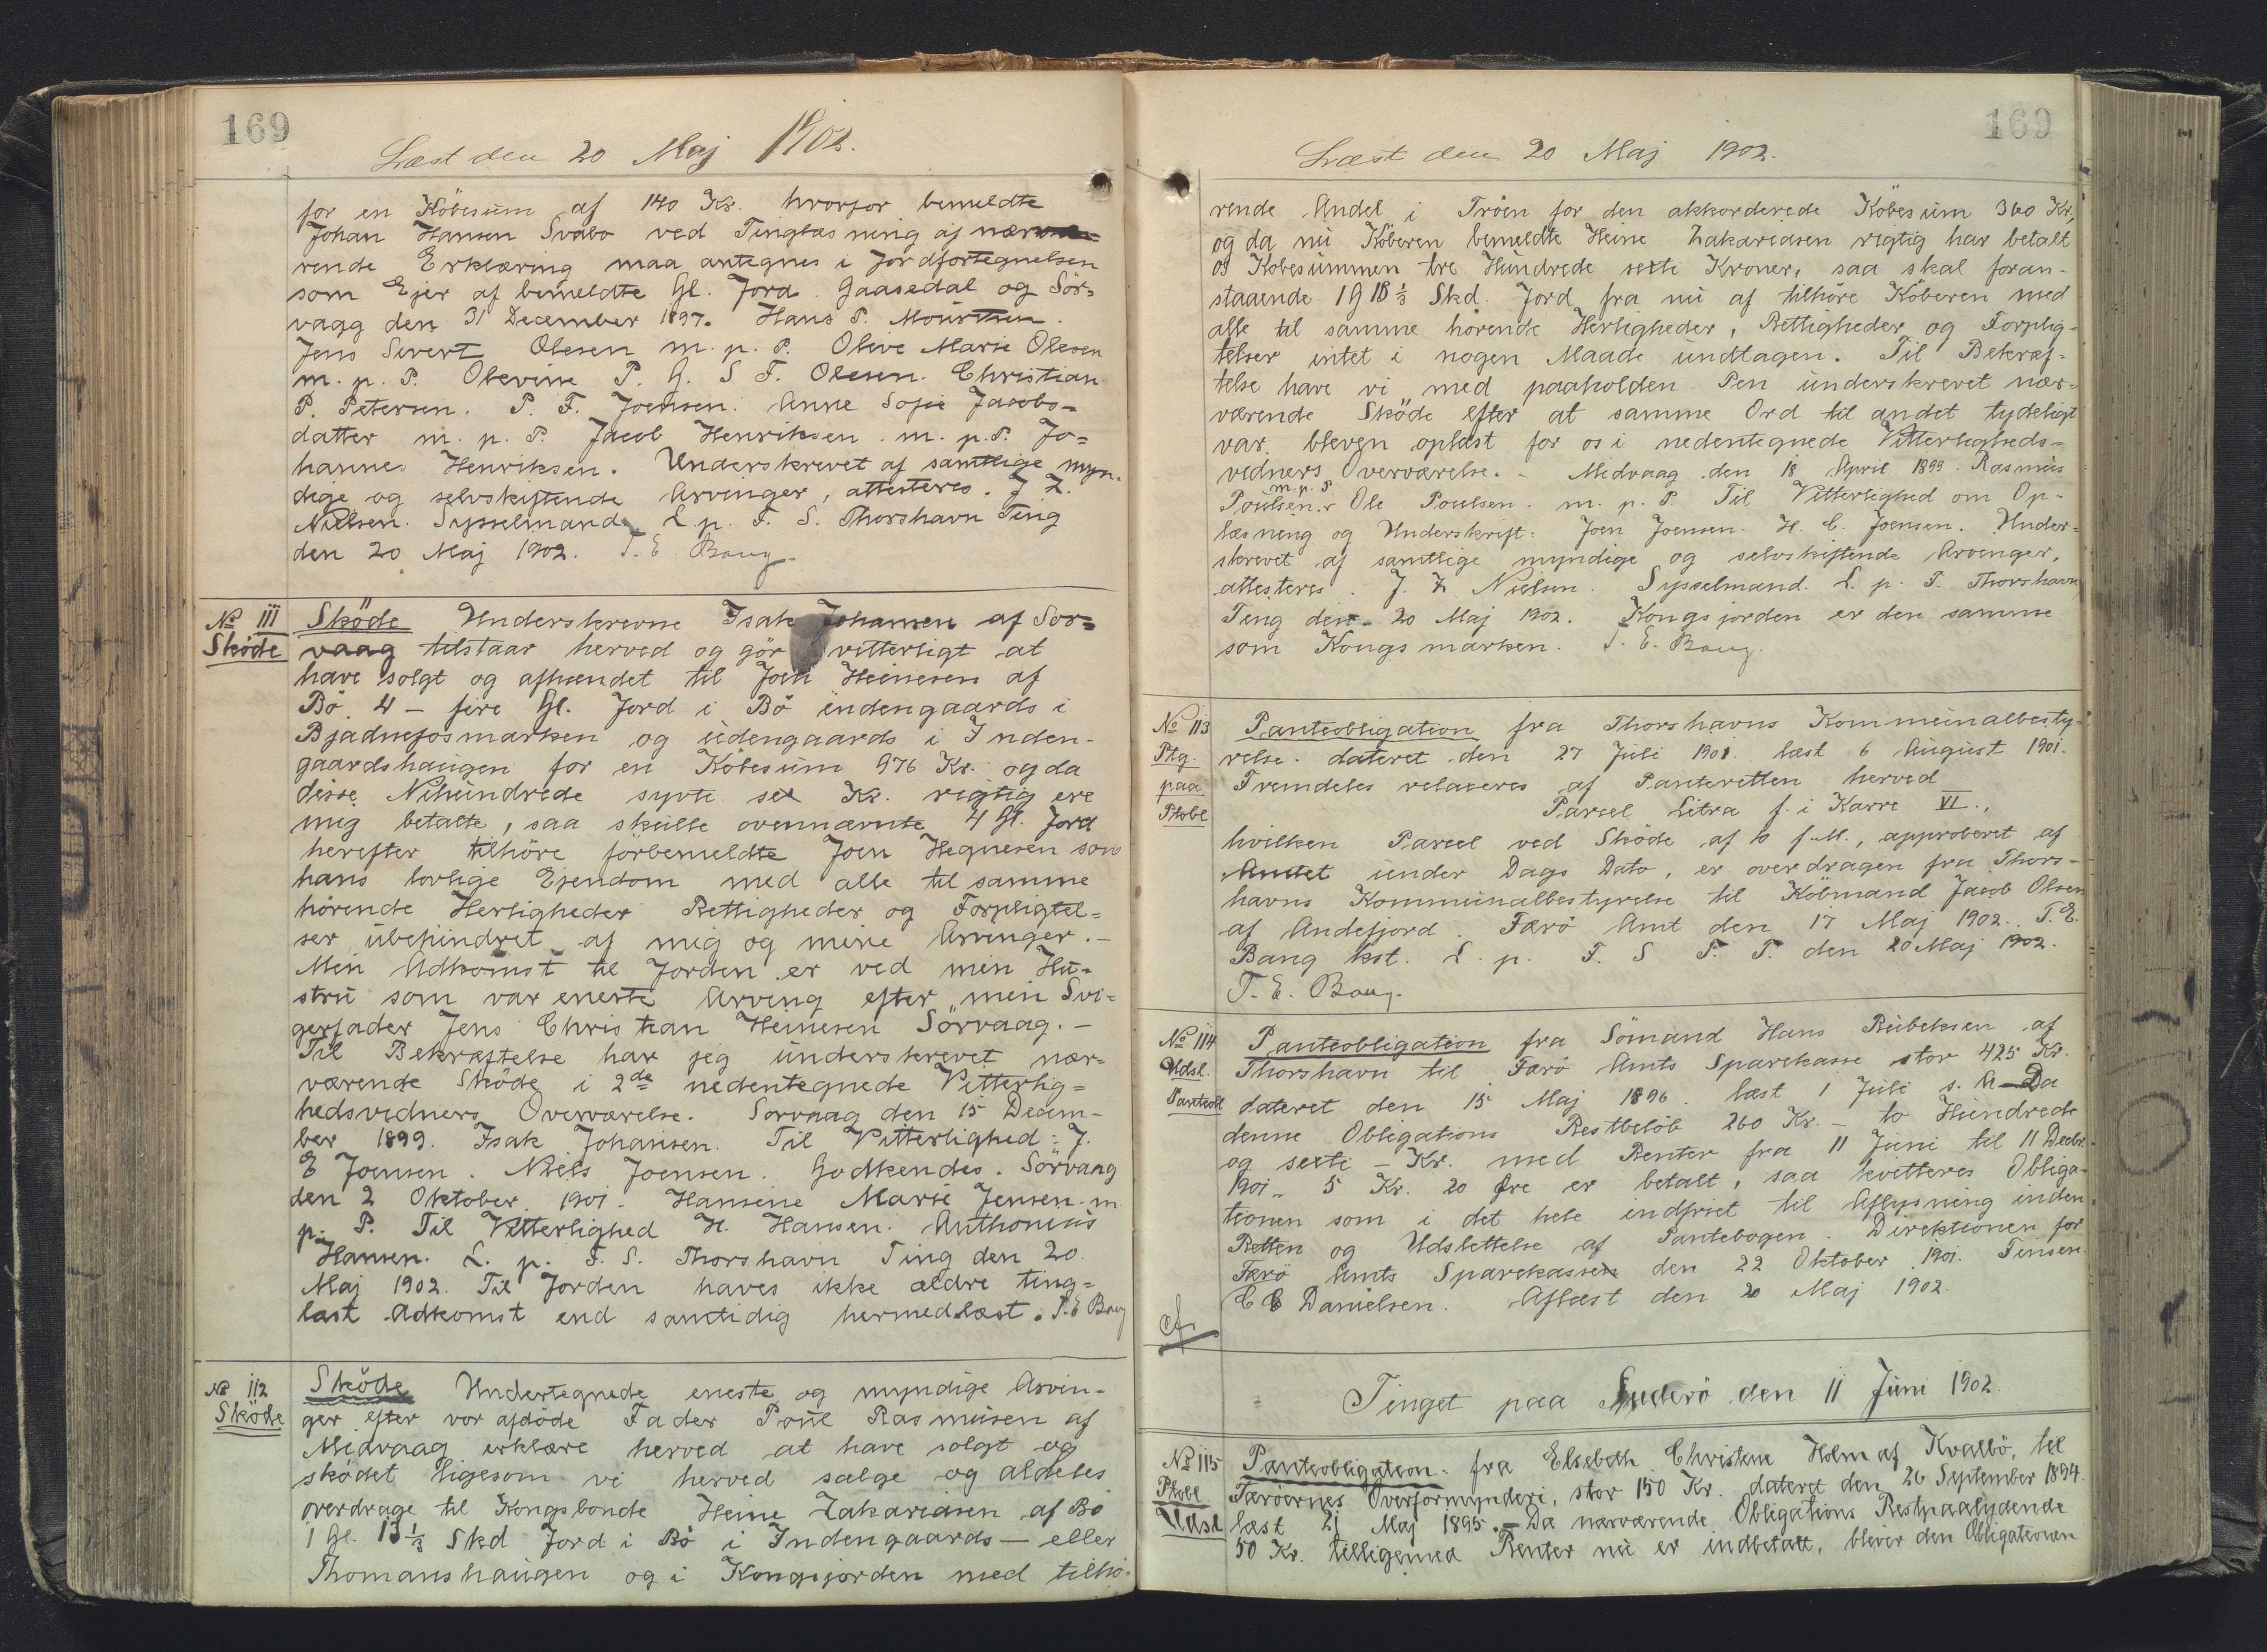 169
Læst den 20 Maj 1902.
for en Köbesum af 140 Kr. hvorfor bemeldte
Johan Hansen Svabo ved Tinglæsning af nærvæ=
rende Erklæring maa antegnes i Jordfortegnelsen
som Ejer af bemeldte Gl. Jord. Gaasedal og Sör=
vaag den 31 December 1897. Hans P. Mouritsen.
Jens Sivert Olesen m. p. P. Olive Marie Olesen
m. p. P. Olevine P. G. S F. Olesen. Christian
P. Petersen. P. F. Joensen. Anne Sofie Jacobs=
datter m. p. P. Jacob Henriksen. m. p. P. Jo=
hannes Henriksen. Underskrevet af samtlige myn.
dige og selvskiftende Arvinger, attesteres. J. Z.
Nielsen. Sysselmand. L. p. F. S. Thorshavn Ting
den 20 Maj 1902. T. E. Bang.
No 111
Sköde
Sköde Underskrevne Isak Johansen af Sör=
vaag tilstaar herved og gör vitterligt at
have solgt og afhændet til Joen Heinesen af
Bö. 4 - fire Gl. Jord i Bö indengaards i
Bjadnefosmarken og udengaards i Inden-
gaardshaugen for en Köbesum 976 Kr. og da
disse Nihundrede syvti sex Kr. rigtig ere
mig betalte, saa skulle ovennævnte 4 Gl. Jord
herefter tilhöre förbemeldte Joen Hegnesen som
hans lovlige Ejendom med alle til samme
hörende Herligheder Rettigheder og Forpligtel=
ser ubehindret af mig og mine Arvinger.-
Min Adkomst til Jorden er ved min Hu=
stru som var eneste Arving efter min Svi=
gerfader Jens Christian Heinesen Sörvaag.-
Til Bekræftelse har jeg underskrevet nær=
værende Sköde i 2de nedentegnede Vitterlig=
hedsvidners Overværelse. Sorvaag den 15 Decem-
ber 1899. Isak Johansen. Til Vitterlighed: J.
E Joensen. Niels Joensen. Godkendes. Sörvaag
den 2 Oktober 1901. Hansine Marie Jensen. m
p. P. Til Vitterlighed H. Hansen. Anthonius
Hansen. L. p. F. S. Thorshavn Ting den 20
Maj 1902. Til Jorden haves ikke ældre ting=
læst Adkomst end samtidig hermed læst. T. E Bang
No 112
Sköde
Sköde Undertegnede eneste og myndige Arvin-
ger efter vor afdöde Fader Poul Rasmusen af
Midvaag erklære herved at have solgt og
sködet ligesom vi herved sælge og aldeles
overdrage til Kongsbonde Heine Zakariasen af Bö
1 Gl. 13 1/3 Skd Jord i Bö i Indengaards- eller
Thomanshaugen og i Kongsjorden med tilhö-
169
Læst den 20 Maj 1902.
rende Andel i Tröen for den akkorderede Köbesum 360 Kr,
og da nu Köberen bemeldte Heine Zakariasen rigtig har betalt
os Kobesummen tre Hundrede sexti Kroner, saa skal foran-
staaende 1 G 1B 1/3 Skd. Jord fra nu af tilhöre Köberen med
alle til samme hörende Herligheder, Rettigheder og Forplig-
telser intet i nogen Maade undtagen. Til Bekræf-
telse have vi med paaholden Pen underskrevet nær-
værende Sköde efter at samme Ord til andet tydeligt
var bleven oplæst for os i nedentegnede Vitterligheds-
vidners Overværelse.- Midvaag den 18 April 1899. Rasmus
Poulsen m. p. P. Ole Poulsen. m. p. P. Til Vitterlighed om Op-
læsning og Underskrift: Joen Joensen. H. C. Joensen. Under-
skrevet af samtlige myndige og selvskiftende Arvinger,
attesteres. J. Z Nielsen. Sysselmand. L. p. T. Thorshavn
Ting den 20 Maj 1902. Kongsjorden er den samme
som Kongsmarken. T. E. Bang.
No 113
Ptg.
paa
Ptobl
Panteobligation fra Thorshavns Kommunalbesty-
relse. dateret den 27 Juli 1901 læst 6 August 1901.
Fremdeles relaxeres af Panteretten herved
Parcel Litra f. i Karre VI.,
hvilken Parcel ved Sköde af 10 f. M., approberet af
Amtet under Dags Dato, er overdragen fra Thors-
havns Kommunalbestyrelse til Köbmand Jacob Olsen
af Andefjord. Færö Amt den 17 Maj 1902. T. E.
Bang kst. L. p. F. S T. T. den 20 Maj 1902.
T. E. Bang.
No 114
Udsl.
Panteobl
Panteobligation fra Sömand Hans Rubeksen af
Thorshavn til Færö Amts Sparekasse stor 425 Kr.
dateret den 15 Maj 1896. læst 1 Juli s. A - Da
denne Obligations Restbelöb 260 Kr. - to Hundrede
og sexti - Kr. med Renter fra 11 Juni til 11 Decbr.
1901. 5 Kr. 20 Øre er betalt, saa kvitteres Obliga-
tionen som i det hele indfriet til Aflysning inden
Retten og Udslettelse af Pantebogen. Direktionen for
Færö Amts Sparekasse den 22 Oktober 1901. Finsen.
C C Danielsen. Aflæst den 20 Maj 1902.
cf.
Tinget paa Suderö den 11 Juni 1902.
No 115
Ptobl
Udsl
Panteobligation. fra Elsebeth Christine Holm af Kvalbö, til
Færöernes Overformynderi, stor 150 Kr. dateret den 26 September 1894.
læst 21 Maj 1895.- Da nærværende Obligations Restpaalydende
50 Kr. tilligemed Renter nu er indbetalt, bliver den Obligationen